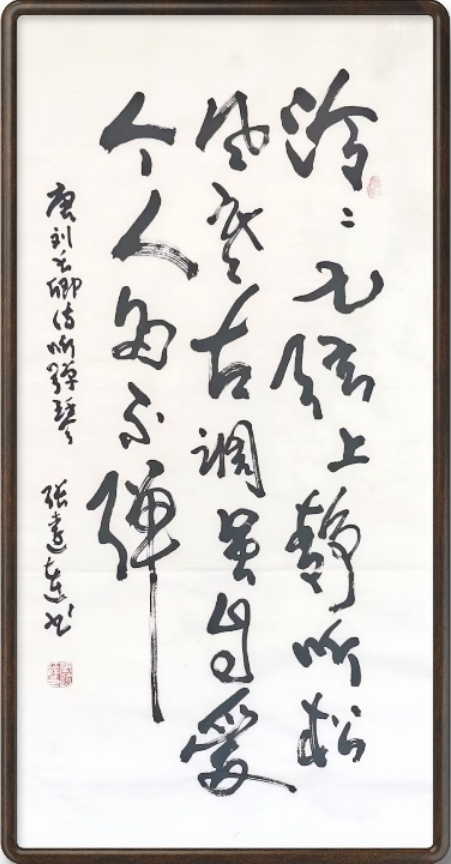 泠〻七弦上静听松
风寒古调虽自爱
今人多不弹
唐刘长卿诗听弹琴
张